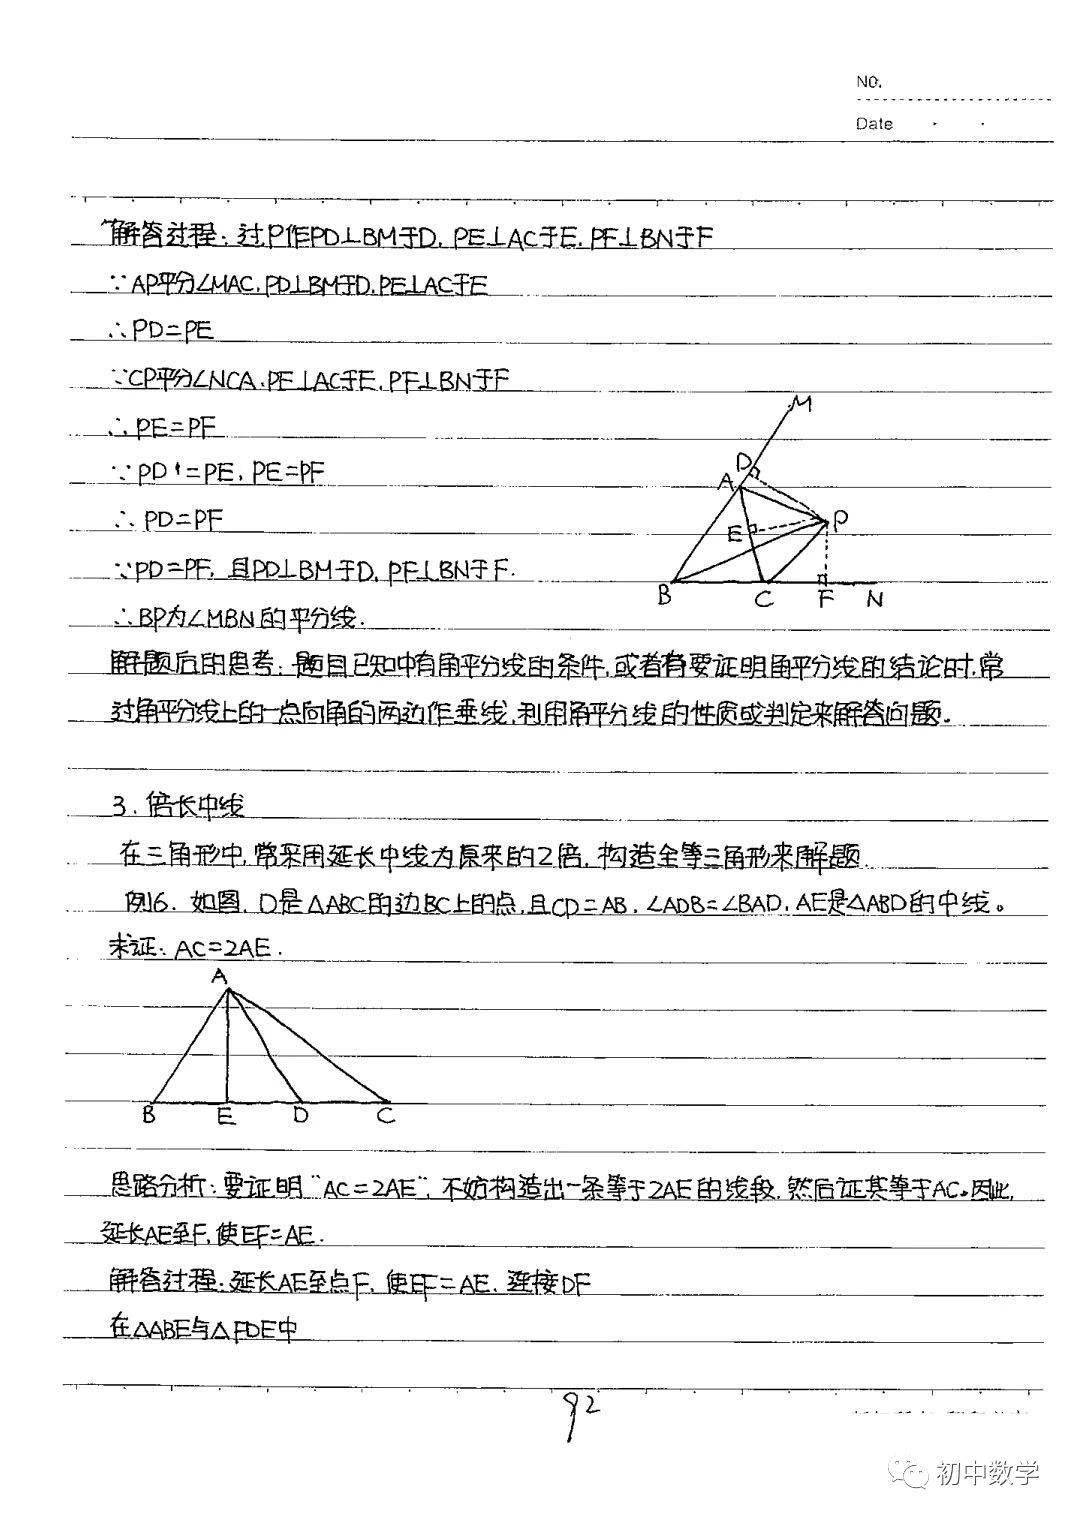 NO.
Date
解答过程:过P作PD⊥BM于D.PE⊥AC于E.PF⊥BN于F
∵AP平分∠MAC.PD⊥BM于D.PE⊥AC于E
∴PD=PE
∵CP平分∠NCA.PE⊥AC于E.PF⊥BN于F
∴PE=PF
∵PD=PE,PE=PF
∴PD=PF
∵PD=PF,且PD⊥BM于D,PF⊥BN于F.
∴BP为∠MBN的平分线.
M
D
A
E
P
B
C
F
N
解题后的思考:题目已知中有角平分线的条件,或者有要证明角平分线的结论时,常
过角平分线上的一点向角的两边作垂线,利用角平分线的性质或判定来解答问题。
3.倍长中线
在三角形中,常采用延长中线为原来的2倍,构造全等三角形来解题.
例6.如图,D是△ABC的边BC上的点,且CD=AB,∠ADB=∠BAD,AE是△ABD的中线。
求证:AC=2AE.
A
B
E
D
C
思路分析:要证明“AC=2AE”,不妨构造出一条等于2AE的线段,然后证其等于AC。因此,
延长AE至F,使EF=AE.
解答过程:延长AE至点F,使EF=AE,连接DF
在△ABE与△FDE中
92
初中数学